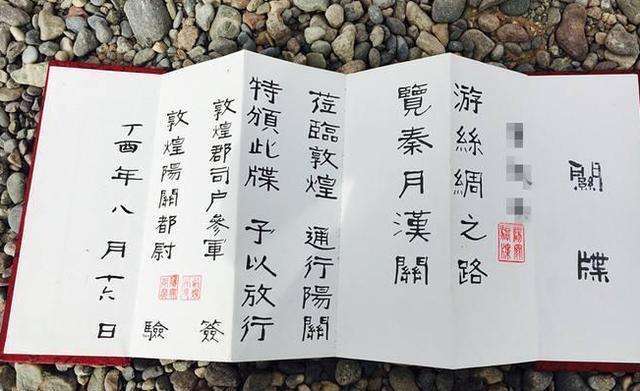 關牒
游絲綢之路
覽秦月漢關
莅臨敦煌 通行陽關
特頒此牒 予以放行
敦煌郡司户參軍 簽
敦煌陽關都尉 驗
丁酉年八月十六日